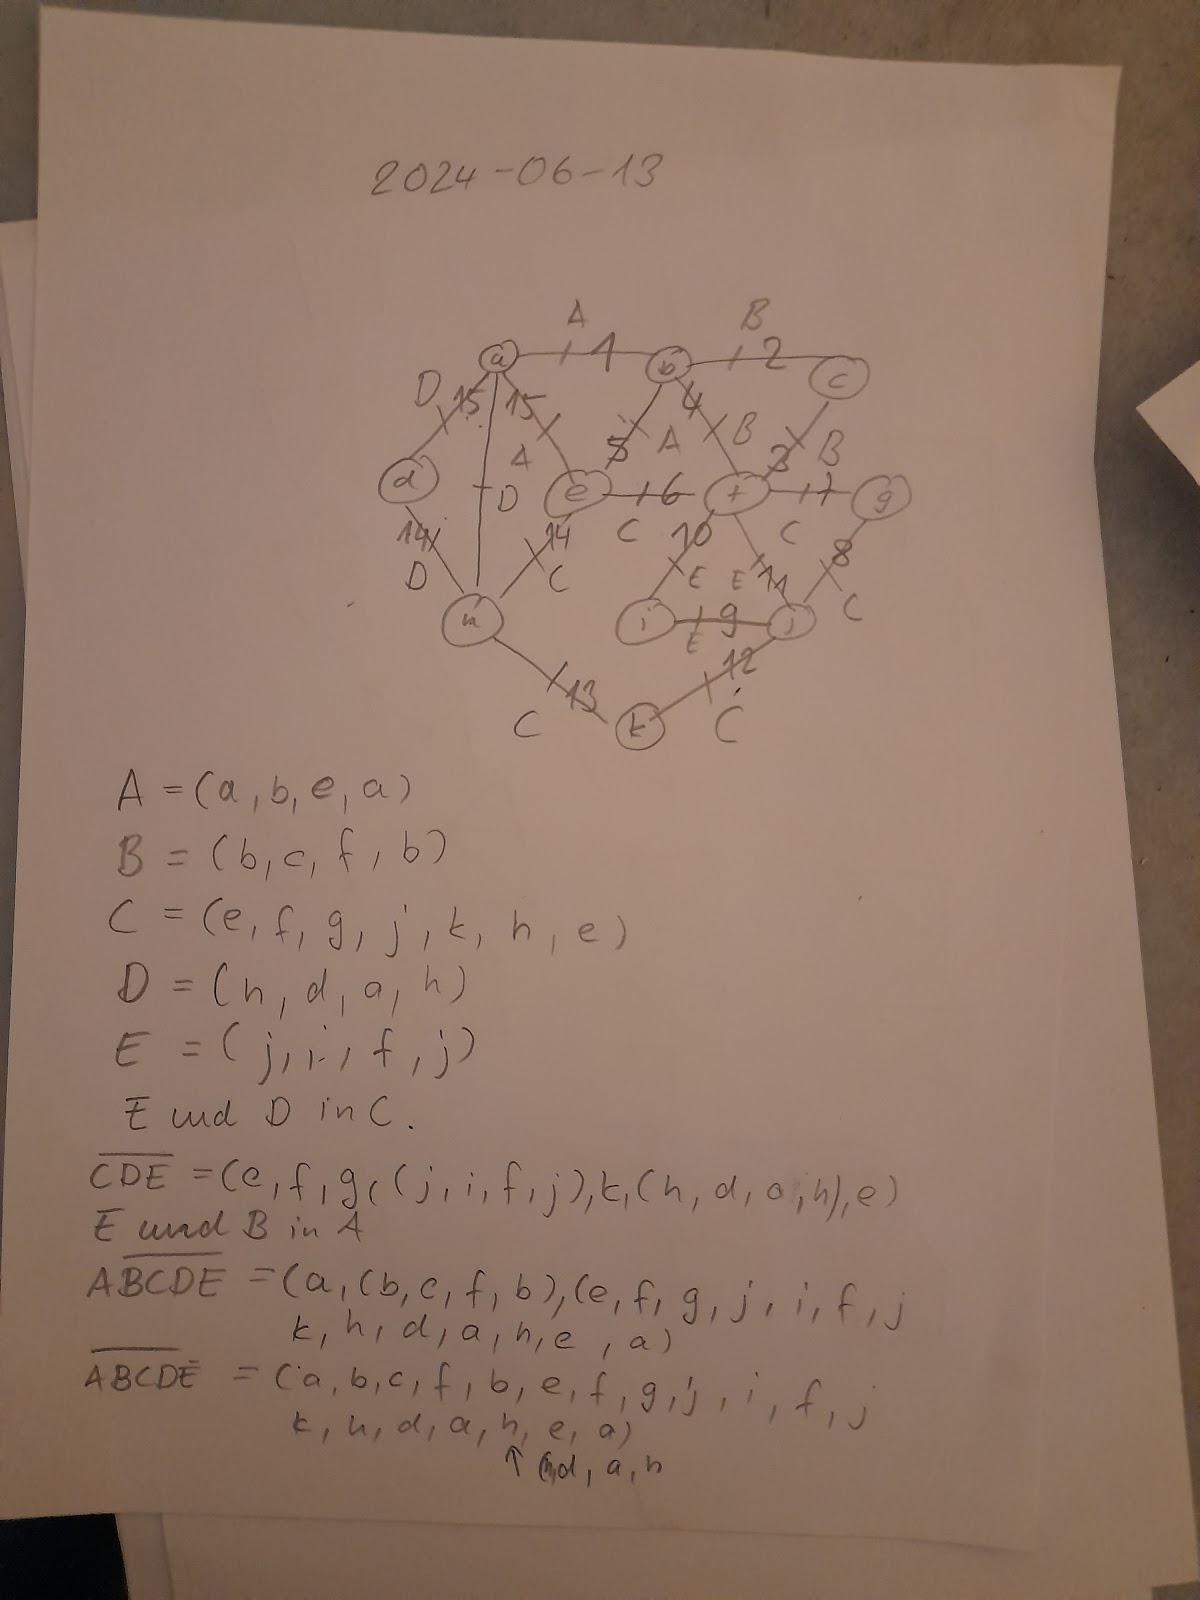 2024-06-13
A B
a 1 b 2 c
D 15 15 4 B 3 B
A 5 A
d D e 6 f 7 g
14 14 C 10 C 8
D C E E 11 C
h i 9 j
E 12
13
C k C
A = (a, b, e, a)
B = (b, c, f, b)
C = (e, f, g, j, k, h, e)
D = (h, d, a, h)
E = (j, i, f, j)
E und D in C.
CDE = (e, f, g, (j, i, f, j), k, (h, d, a, h), e)
E und B in A
ABCDE = (a, (b, c, f, b), (e, f, g, j, i, f, j
k, h, d, a, h, e, a)
ABCDE = (a, b, c, f, b, e, f, g, j, i, f, j
k, h, d, a, h, e, a)
↑ (h, d, a, h